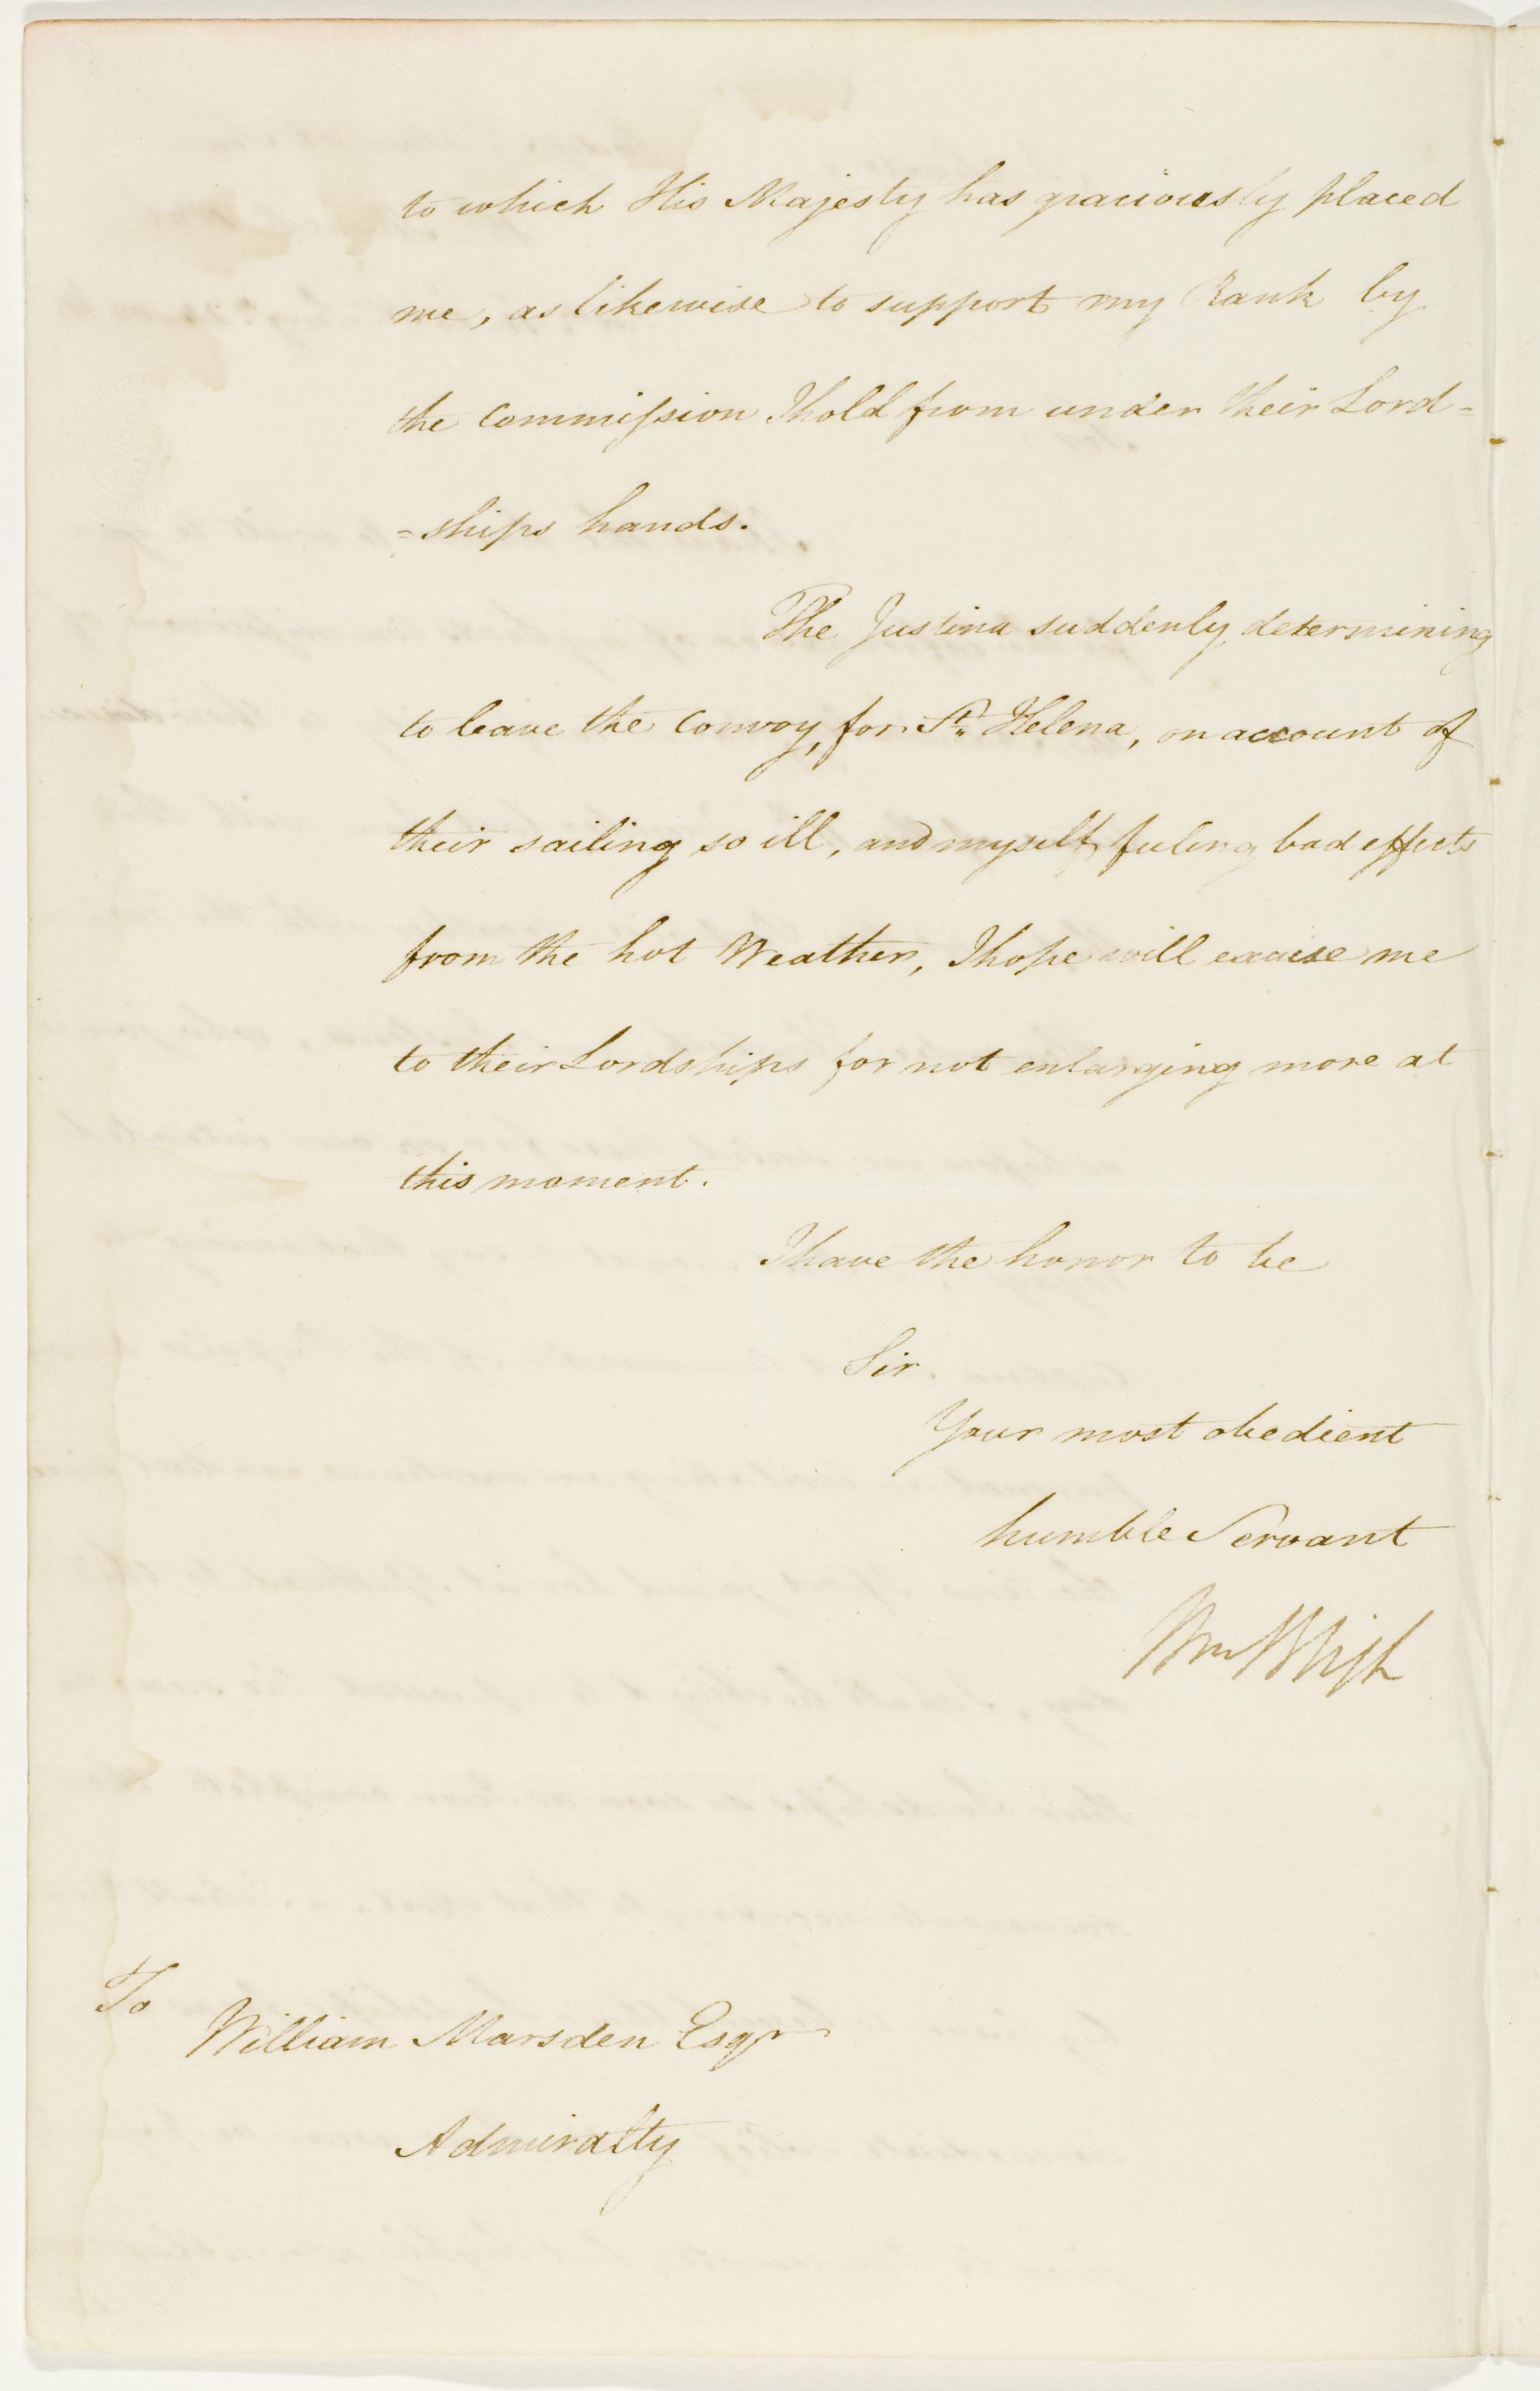 to which His Majesty has graciously placed
me, as likewise to support my Rank by
the Commission I hold from under their Lord=
=ships hands.
The Justina suddenly determining
to leave the Convoy, for St. Helena, on account of
their sailing so ill, and myself feeling bad effects
from the hot Weather, I hope will excuse me
to their Lordships for not enlarging more at
this moment.
I have the honor to be
Sir.
Your most obedient
humble Servant
Wm Bligh
To
William Marsden Esqr
Admiralty